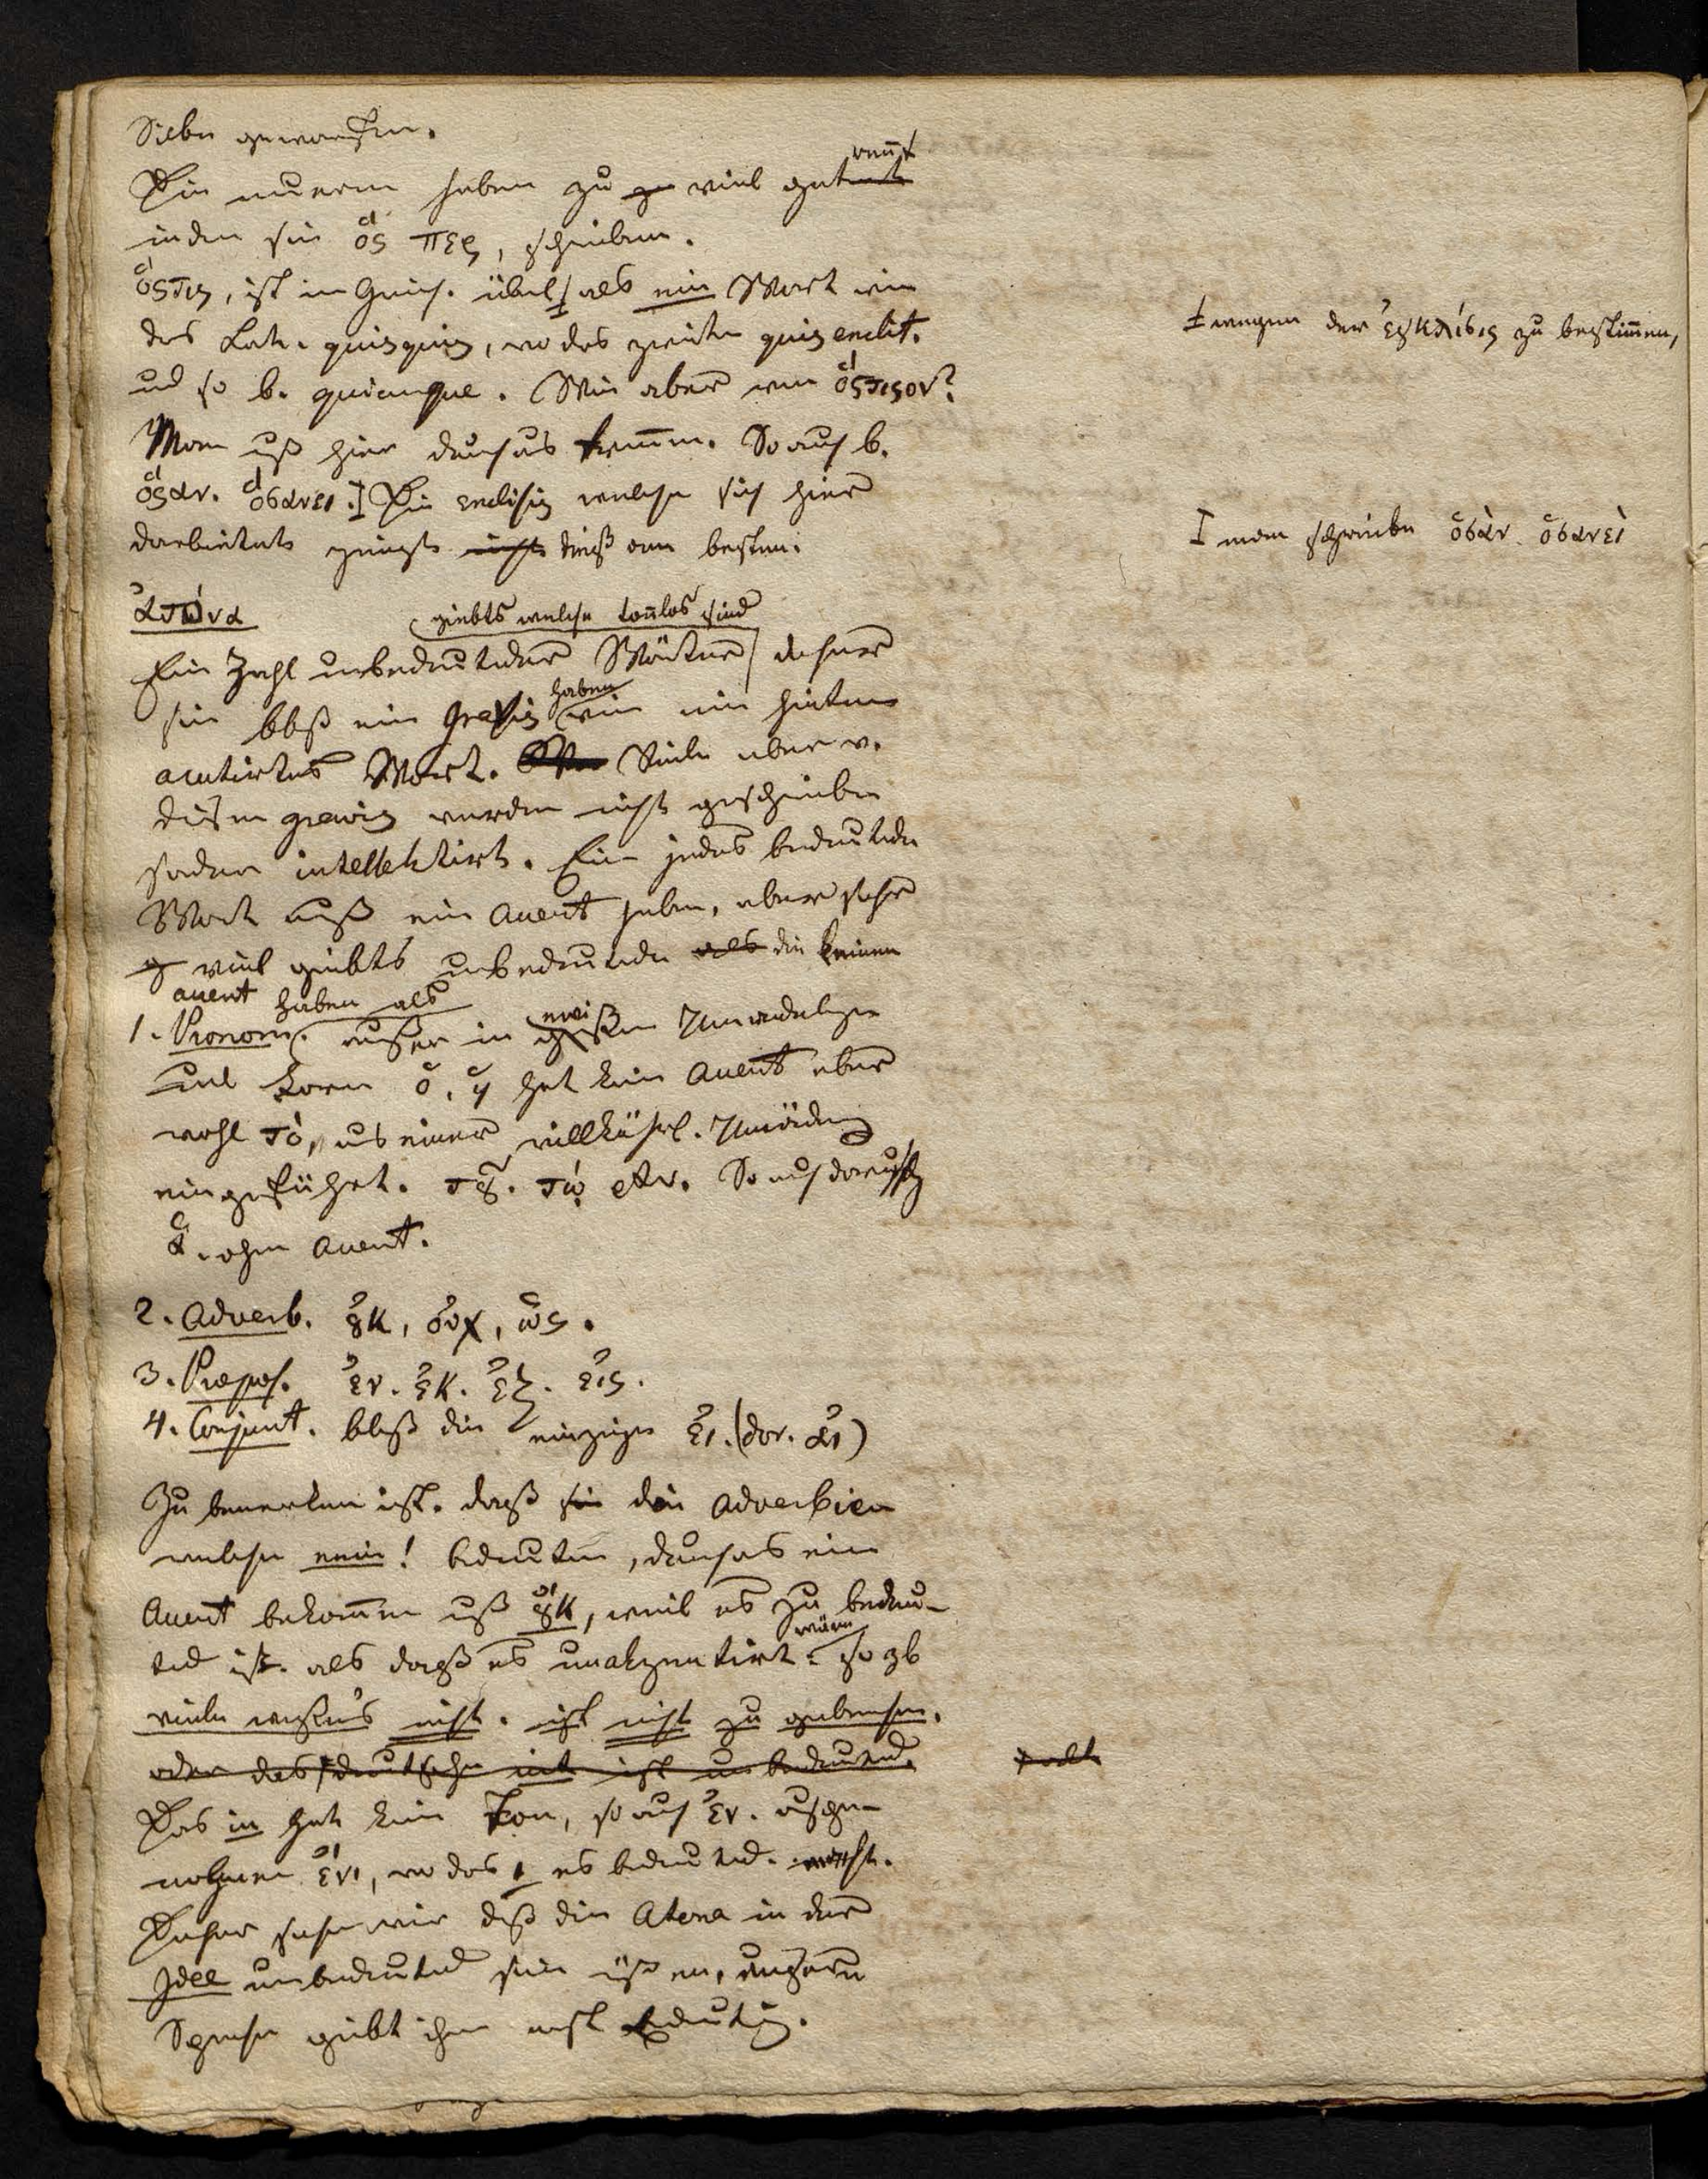 Silbe geworfen.
Die neuern haben zu viel getrennt
indem sie ὅς περ, schreiben.
ὅςτις, ist im Griech. übel als ein Wort wie
das Lat. quisquis, wo das zweite quis enclit.
und so b. quicunque. Wie aber von ὅςτιςον?
Man muß hier durchaus trennen. So auch b.
ὅςαν. ὅσανει. Die enclisis welche sich hier
darbietet zeigts dieß am besten.
I wegen der ἐγκλίσις zu bestimen,
I man schreibe ὅσὰν. ὅσανεὶ
ἀτόνα
Eine Zahl unbedeutender Wörter giebts welche tonlos sind daher
sie bloß ein gravis haben wie ein hinten
acutirtes Wort. Viele aber v.
diesem gravis werden nicht geschrieben
sonder intellektirt. Ein jedes bedeutende
Wort muß ein Accent haben, aber sehr
viel giebts unbedeutende die keinen
accent haben als
1. Pronom. außer in
und Form ὁ, ἡ hat kein Accent aber
wohl τὸ, aus einer willkührl.
eingeführt. τȣ͂. τῷ etc. So auch
ἁ. ohne Accent.
2. Adverb. ȣ̓κ, οὐχ, ὡς.
3. Præpos. ἐν. ἐκ. ἐξ. εἰς.
4. Conjunct. bloß die einzige εἰ. (dor. αἰ)
Zu bemerken ist. daß die Adverbien
welche nein! bedeuten, durchaus ein
Accent bekommen muß ȣ̓́κ, weil es zu bedeu-
tend ist. als daß es unakzentirt wäre. so zb
viele wissens nicht. ist nicht zu gebrauchen.
oder das deutsche nit ist unbedeutend.
Das in hat kein Ton, so auch ἐν. ausge-
nohmen ἔνι, wo das ι es bedeutend macht.
Daher sehen wir daß die Atona in der
Idee unbedeutend sein müssen,
Sprache giebt ihnen erst Bedeutung.